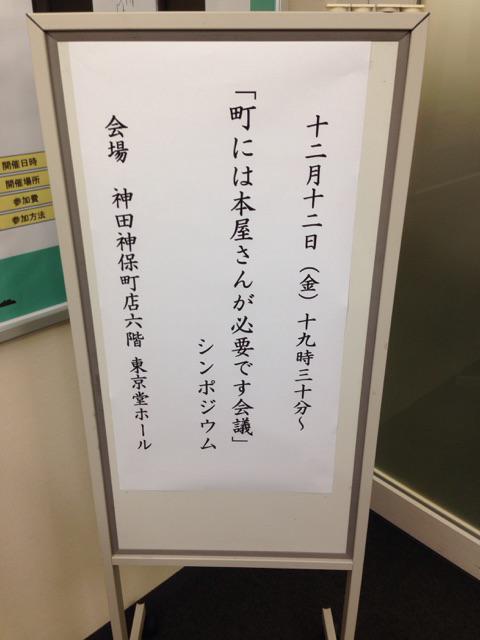 十二月十二日（金）十九時三十分～
「町には本屋さんが必要です会議」
シンポジウム
会場　神田神保町店六階 東京堂ホール
開催日時
開催場所
参加費
参加方法